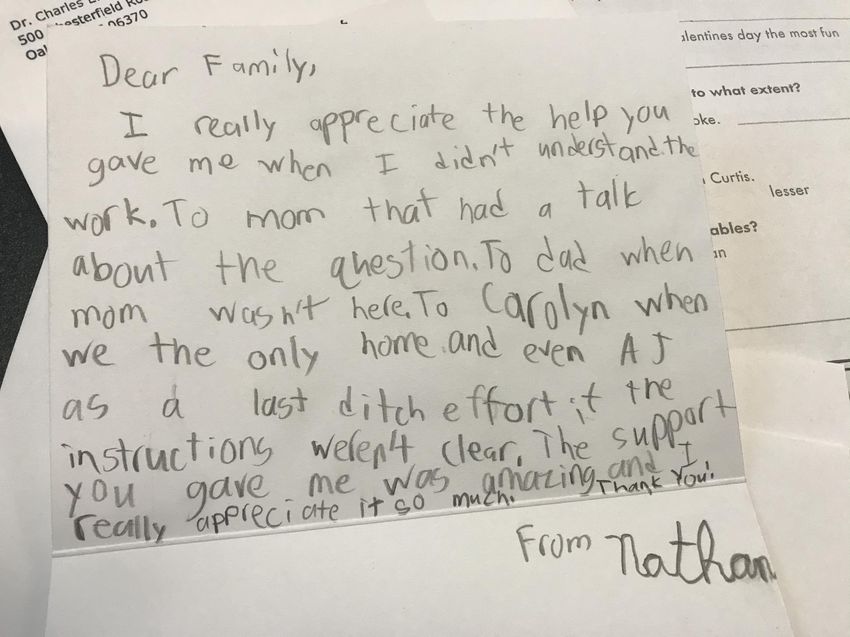 Dr. Charles
500 esterfield
06370
Dear Family,
I really appreciate the help you
gave me when I didn't understand.the
work. To mom that had a talk
about the question. To dad when
mom wasn't here. To Carolyn when
we the only home.and even AJ
as a last ditch effort if the
instructions weren't clear. The support
you gave me was amazing and I
really appreciate it so much. Thank You!
From Nathan
alentines day the most fun
to what extent?
oke.
Curtis.
lesser
ables?